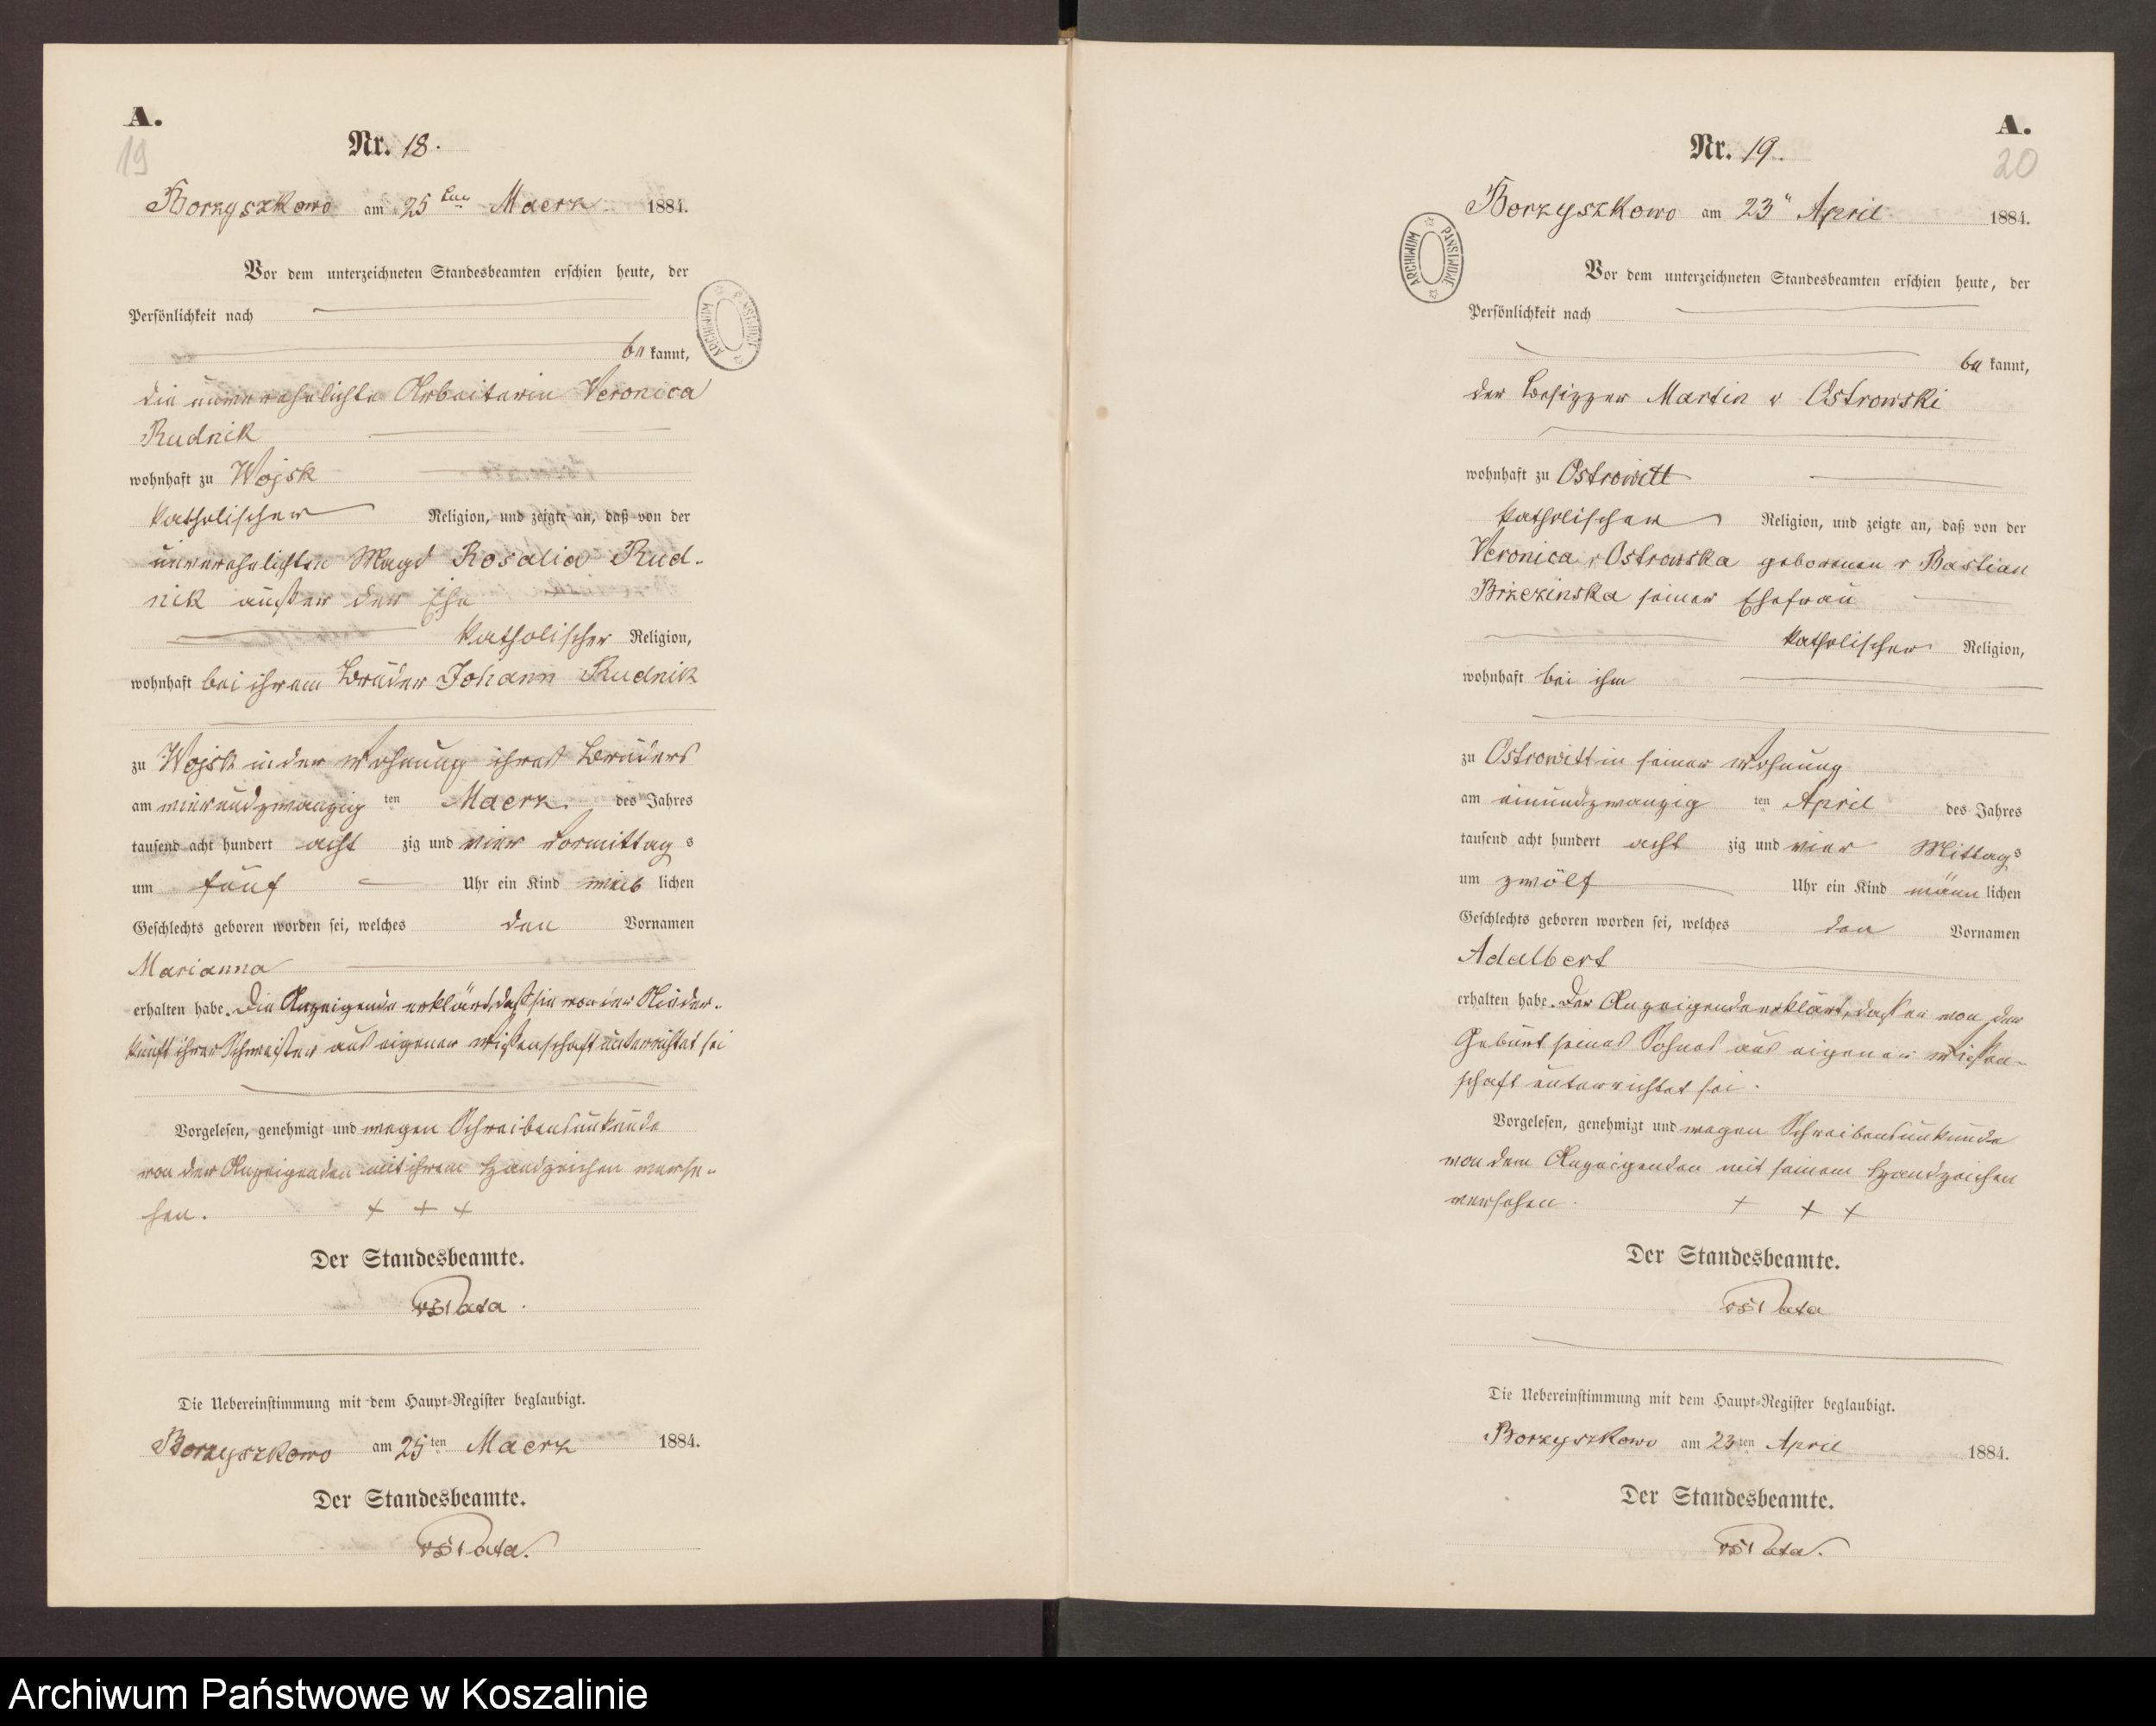 A.
19
Nr. 18.
Borzyszkowo am 25ten Maerz 1884.
Vor dem unterzeichneten Standesbeamten erschien heute, der
Persönlichkeit nach
be kannt,
die unverehelichte Arbeiterin Veronica
Rudnik
wohnhaft zu Wojsk
katholischer Religion, und zeigte an, daß von der
unverehelichten Magd Rosalia Rud-
nik außer der Ehe
katholischer Religion,
wohnhaft bei ihrem Bruder Johann Rudnik
zu Wojsk in der Wohnung ihres Bruders
am vierundzwanzig ten Maerz des Jahres
tausend acht hundert acht zig und vier Vormittag s
um fünf Uhr ein Kind weib lichen
Geschlechts geboren worden sei, welches den Vornamen
Marianna
erhalten habe. Die Anzeigende erklärt, daß sie von der Nieder-
kunft ihrer Schwester aus eigener Wissenschaft unterrichtet sei
Vorgelesen, genehmigt und wegen Schreibensunkunde
von der Anzeigenden mit ihrem Handzeichen verse-
hen. + + +
Der Standesbeamte.
Die Uebereinstimmung mit dem Haupt-Register beglaubigt.
Borzyszkowo am 25ten Maerz 1884.
Der Standesbeamte.
A.
20
Nr. 19.
ARCHIWUM PAŃSTWOWE
Borzyszkowo am 23" April 1884.
Vor dem unterzeichneten Standesbeamten erschien heute, der
Persönlichkeit nach
be kannt,
der Besizzer Martin v Ostrowski
wohnhaft zu Ostrowitt
katholischer Religion, und zeigte an, daß von der
Veronica v Ostrowska geborenen v Bastian
Brzezinska seiner Ehefrau
katholischer Religion,
wohnhaft bei ihm
zu Ostrowitt in seiner Wohnung
am einundzwanzig ten April des Jahres
tausend acht hundert acht zig und vier Mittag s
um zwölf Uhr ein Kind männ lichen
Geschlechts geboren worden sei, welches den Vornamen
Adalbert
erhalten habe. Der Anzeigende erklärt, daß er von der
Geburt seines Sohnes aus eigener Wissen-
schaft unterrichtet sei.
Vorgelesen, genehmigt und wegen Schreibensunkunde
von dem Anzeigenden mit seinem Handzeichen
versehen. + + +
Der Standesbeamte.
Die Uebereinstimmung mit dem Haupt-Register beglaubigt.
Borzyszkowo am 23ten April 1884.
Der Standesbeamte.
Archiwum Państwowe w Koszalinie